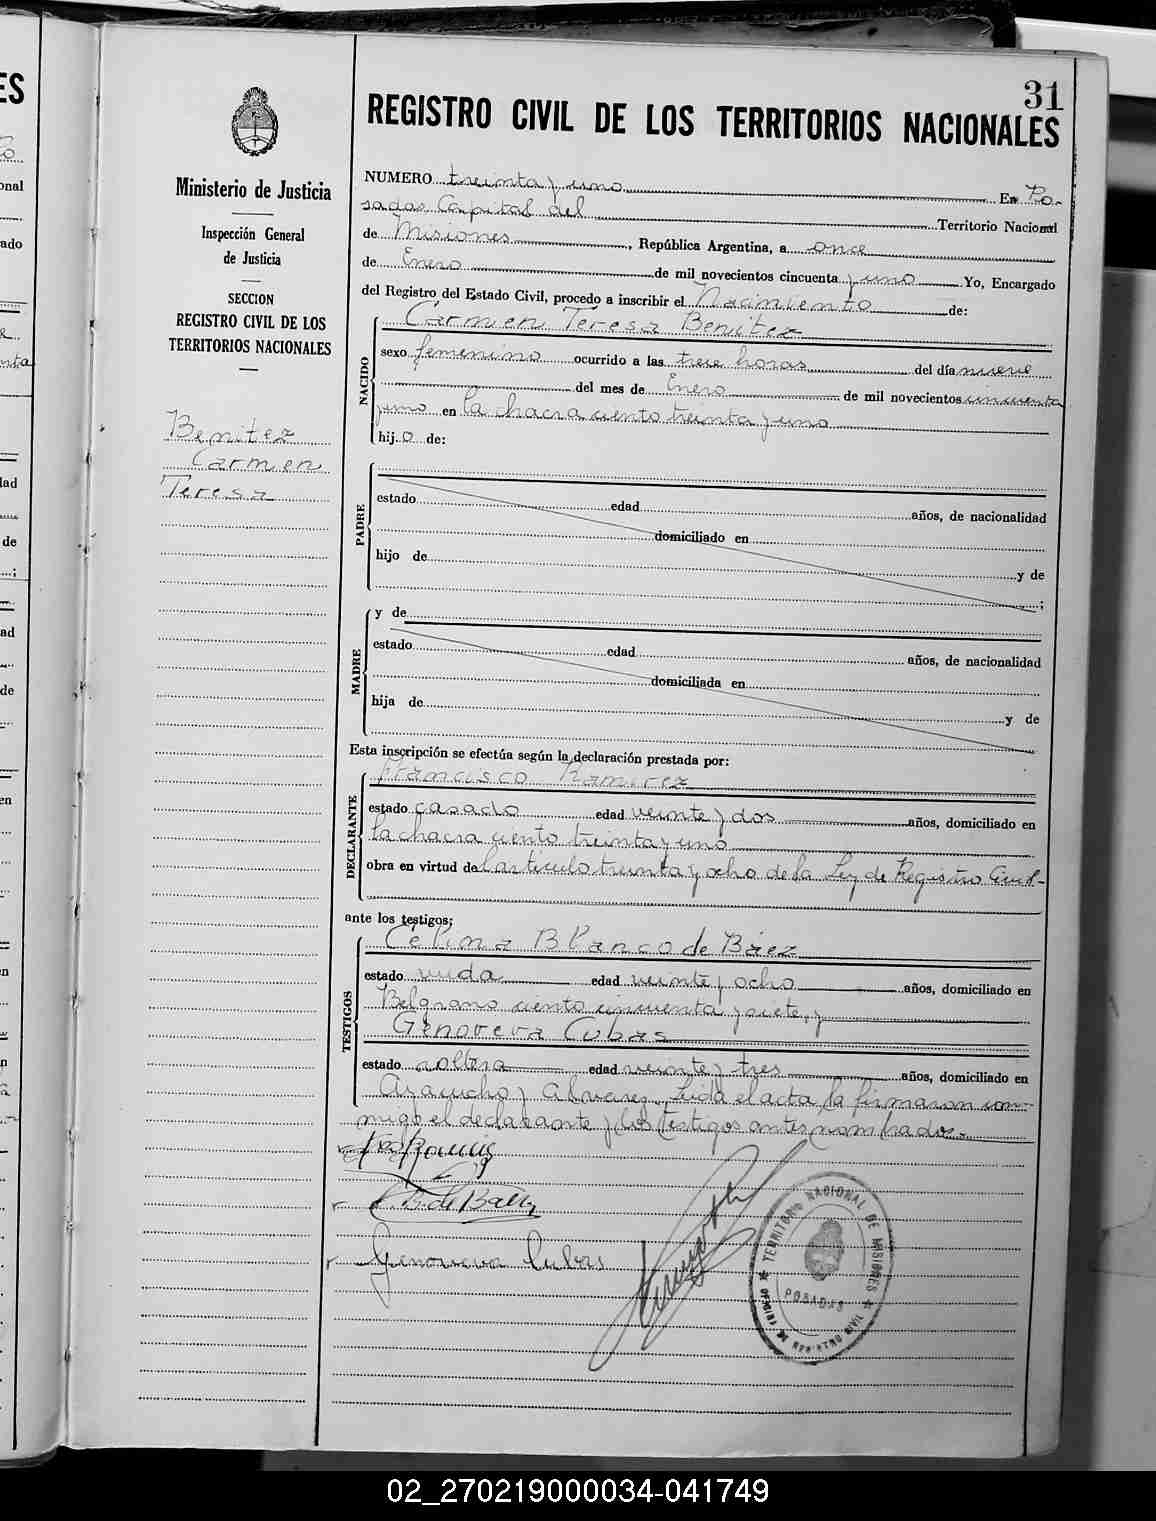 31
REGISTRO CIVIL DE LOS TERRITORIOS NACIONALES
Ministerio de Justicia
Inspección General
de Justicia
SECCION
REGISTRO CIVIL DE LOS
TERRITORIOS NACIONALES
Benitez
Carmen
Teresa
NUMERO treinta y uno En Po-
sadas Capital del Territorio Nacional
de Misiones, República Argentina, a once
de Enero de mil novecientos cincuenta y uno Yo, Encargado
del Registro del Estado Civil, procedo a inscribir el Nacimiento de:
NACIDO
Carmen Teresa Benitez
sexo femenino ocurrido a las trece horas del día nueve
del mes de Enero de mil novecientos cincuenta
y uno en la chacra ciento treinta y uno
hijo de:
PADRE
estado edad años, de nacionalidad
domiciliado en
hijo de y de
;
MADRE
y de
estado edad años, de nacionalidad
domiciliada en
hija de y de
Esta inscripción se efectúa según la declaración prestada por:
DECLARANTE
Francisco Ramirez
estado casado edad veinte y dos años, domiciliado en
la chacra ciento treinta y uno
obra en virtud del artículo treinta y ocho de la Ley de Registro Civil-
ante los testigos;
TESTIGOS
Celina Blanco de Báez
estado viuda edad veinte y ocho años, domiciliado en
Belgrano ciento cincuenta y siete, y
Genoveva Cubas
estado soltera edad veinte y tres años, domiciliado en
Ayacucho y Alvarez. Leida el acta la firmaron con-
migo el declarante y los testigos antes nombrados.-
C. B. de Baez
Genoveva Cubas
TERRITORIO NACIONAL DE MISIONES
POSADAS
OFICIO DE REGISTRO CIVIL
02_270219000034-041749